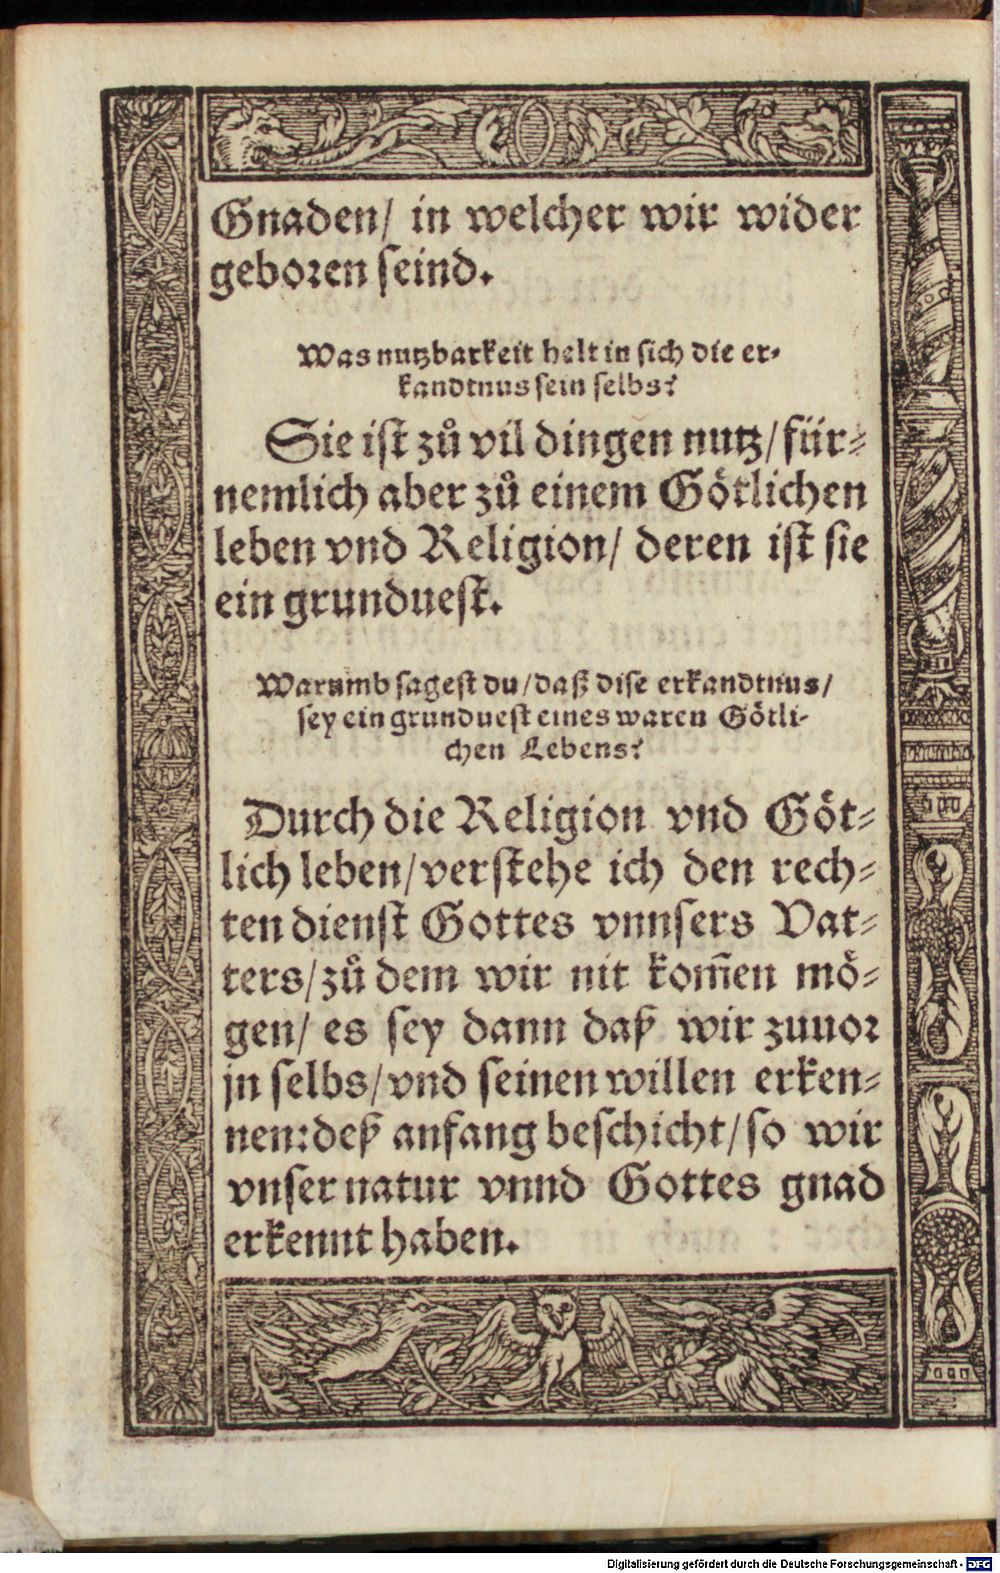 Gnaden/ in welcher wir wider
geboren seind.
Was nutzbarkeit helt in sich die er-
kandtnus sein selbs?
Sie ist zů vil dingen nutz/ für-
nemlich aber zů einem Götlichen
leben vnd Religion/ deren ist sie
ein grunduest.
Warumb sagest du/ daß dise erkandtnus/
sey ein grunduest eines waren Götli-
chen Lebens?
Durch die Religion vnd Göt-
lich leben/ verstehe ich den rech-
ten dienst Gottes vnnsers Vat-
ters/ zů dem wir nit kom̄en mö-
gen/ es sey dann daß wir zuuor
jn selbs/ vnd seinen willen erken-
nen: deß anfang beschicht/ so wir
vnser natur vnnd Gottes gnad
erkennt haben.
Digitalisierung gefördert durch die Deutsche Forschungsgemeinschaft - DFG